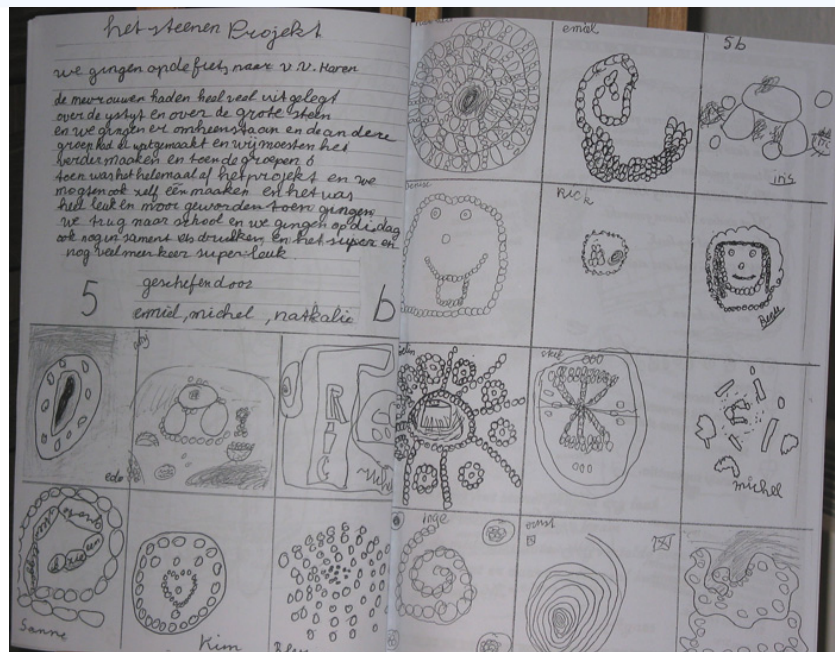 het steenen Projekt
we gingen opdefiets naar v.v. Haren
de mevrouwen haden heel veel uit gelegt
over de ystyt en over de grote steen
en we gingen er omheenstaan en de andere
groep had er wat gemaakt en wij moesten het
verder maaken en toen de groepen 6
toen was het helemaal af het projekt en we
mogsen ook zelf één maaken en het was
heel leuk en mooi geworden toen gingen
we trug naar school en we gingen op di,dag
ook nog in sament drukken en het super en
nog veel meer keer super leuk
geschefen door
5
emiel, michel, nathalie
b
emiel
5b
iris
Denise
Rick
Renee
edo
michel
inge
ernst
Sanne
Kim